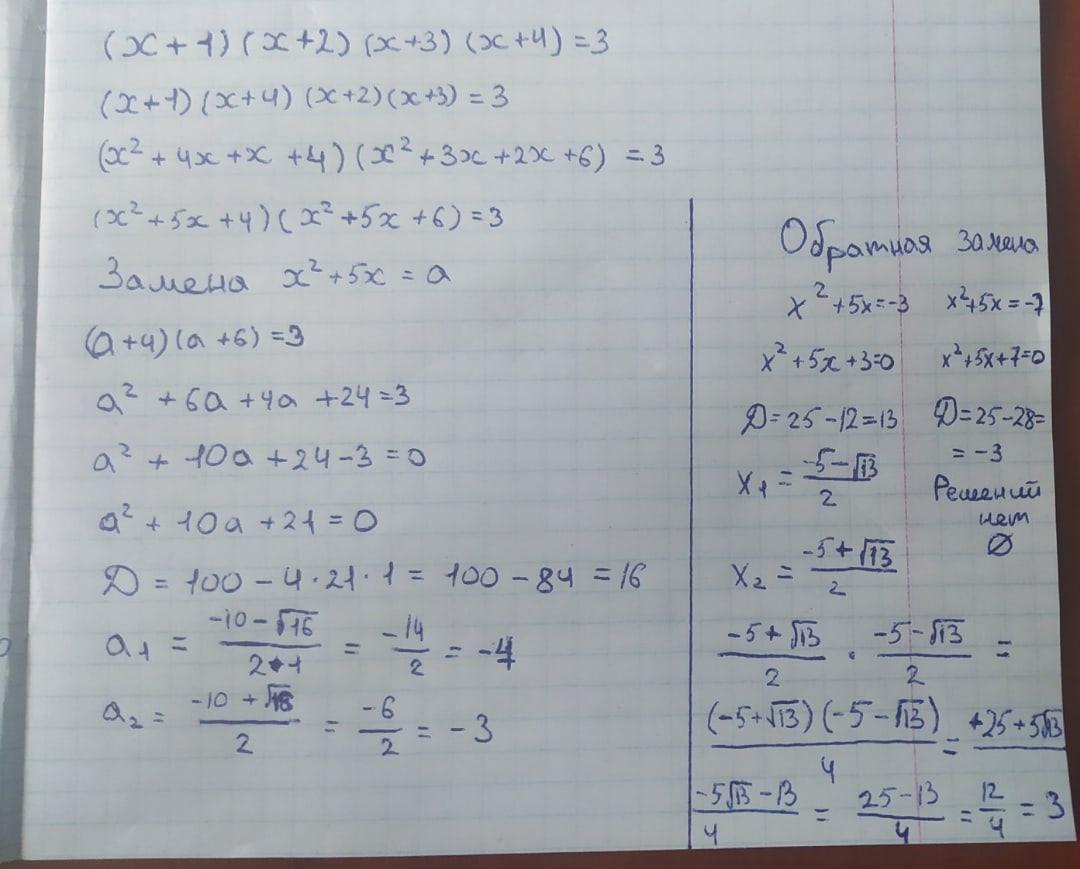 (x+1)(x+2)(x+3)(x+4)=3
(x+1)(x+4)(x+2)(x+3)=3
(x²+4x+x+4)(x²+3x+2x+6)=3
(x²+5x+4)(x²+5x+6)=3
Замена x²+5x=a
(a+4)(a+6)=3
a²+6a+4a+24=3
a²+10a+24-3=0
a²+10a+21=0
Д=100-4·21·1=100-84=16
a₁=(-10-√16)/(2·1)=-14/2=-7
a₂=(-10+√16)/2=-6/2=-3
Обратная замена
x²+5x=-3 x²+5x=-7
x²+5x+3=0 x²+5x+7=0
Д=25-12=13 Д=25-28=
=-3
x₁=(-5-√13)/2 Решений
нет
∅
x₂=(-5+√13)/2
(-5+√13)/2·(-5-√13)/2=
(-5+√13)(-5-√13)/4=+25+5√13
-5√13-13/4=(25-13)/4=12/4=3